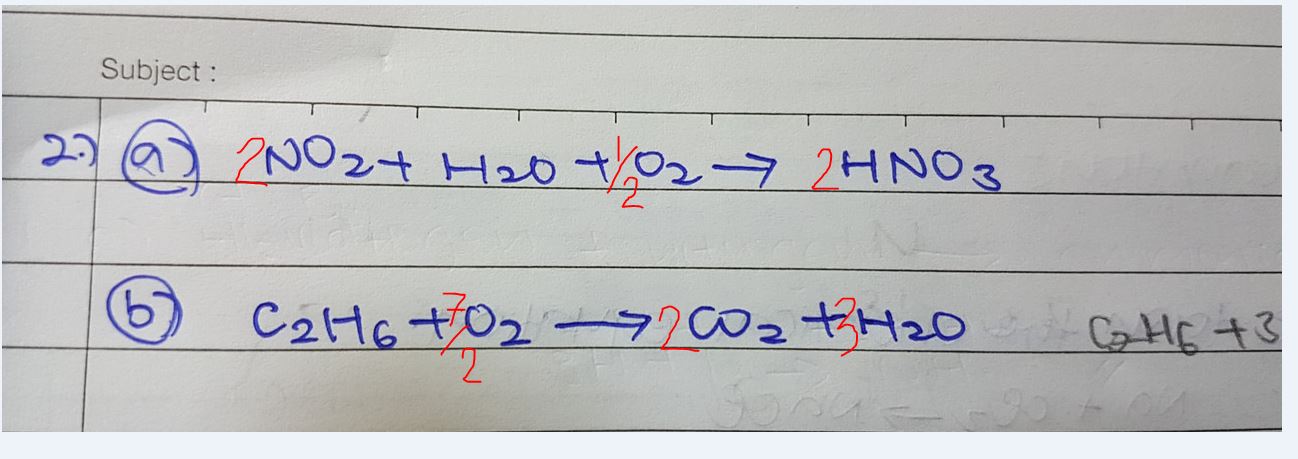 Subject :
2.) (a) 2NO2 + H2O + 1/2 O2 → 2HNO3
(b) C2H6 + 7/2 O2 → 2CO2 + 3H2O C2H6 + 3